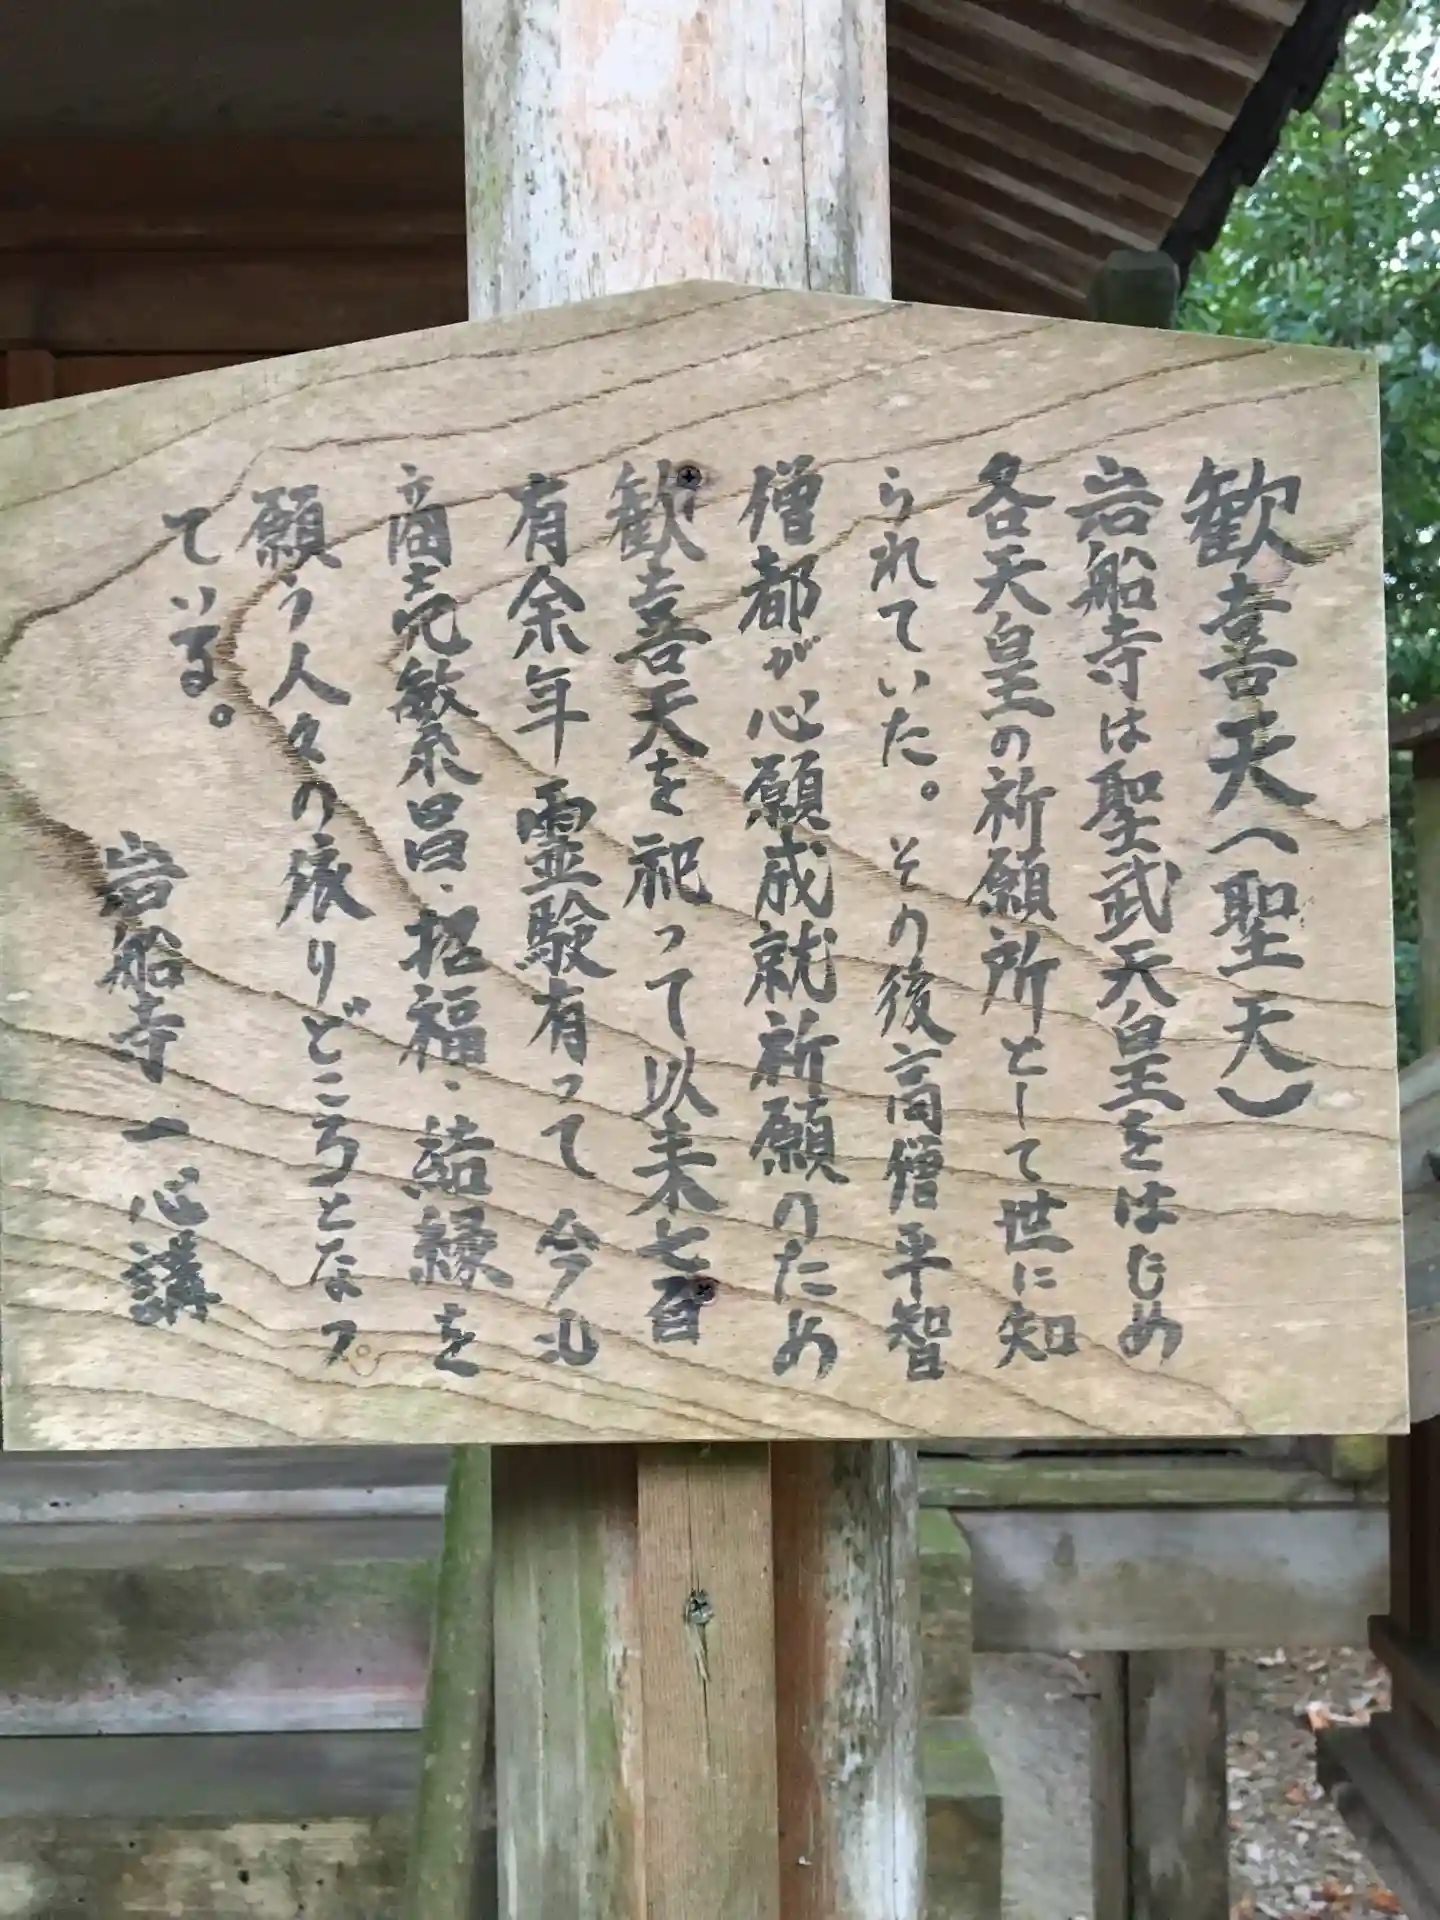 歓喜天(聖天)
岩船寺は聖武天皇をはじめ
各天皇の祈願所として世に知
られていた。その後高僧平智
僧都が心願成就祈願のため
歓喜天を祀って以来七百
有余年霊験有って今も
商売繁昌・招福・結縁を
願う人々の依りどころとなっ
ている。
岩船寺一心講